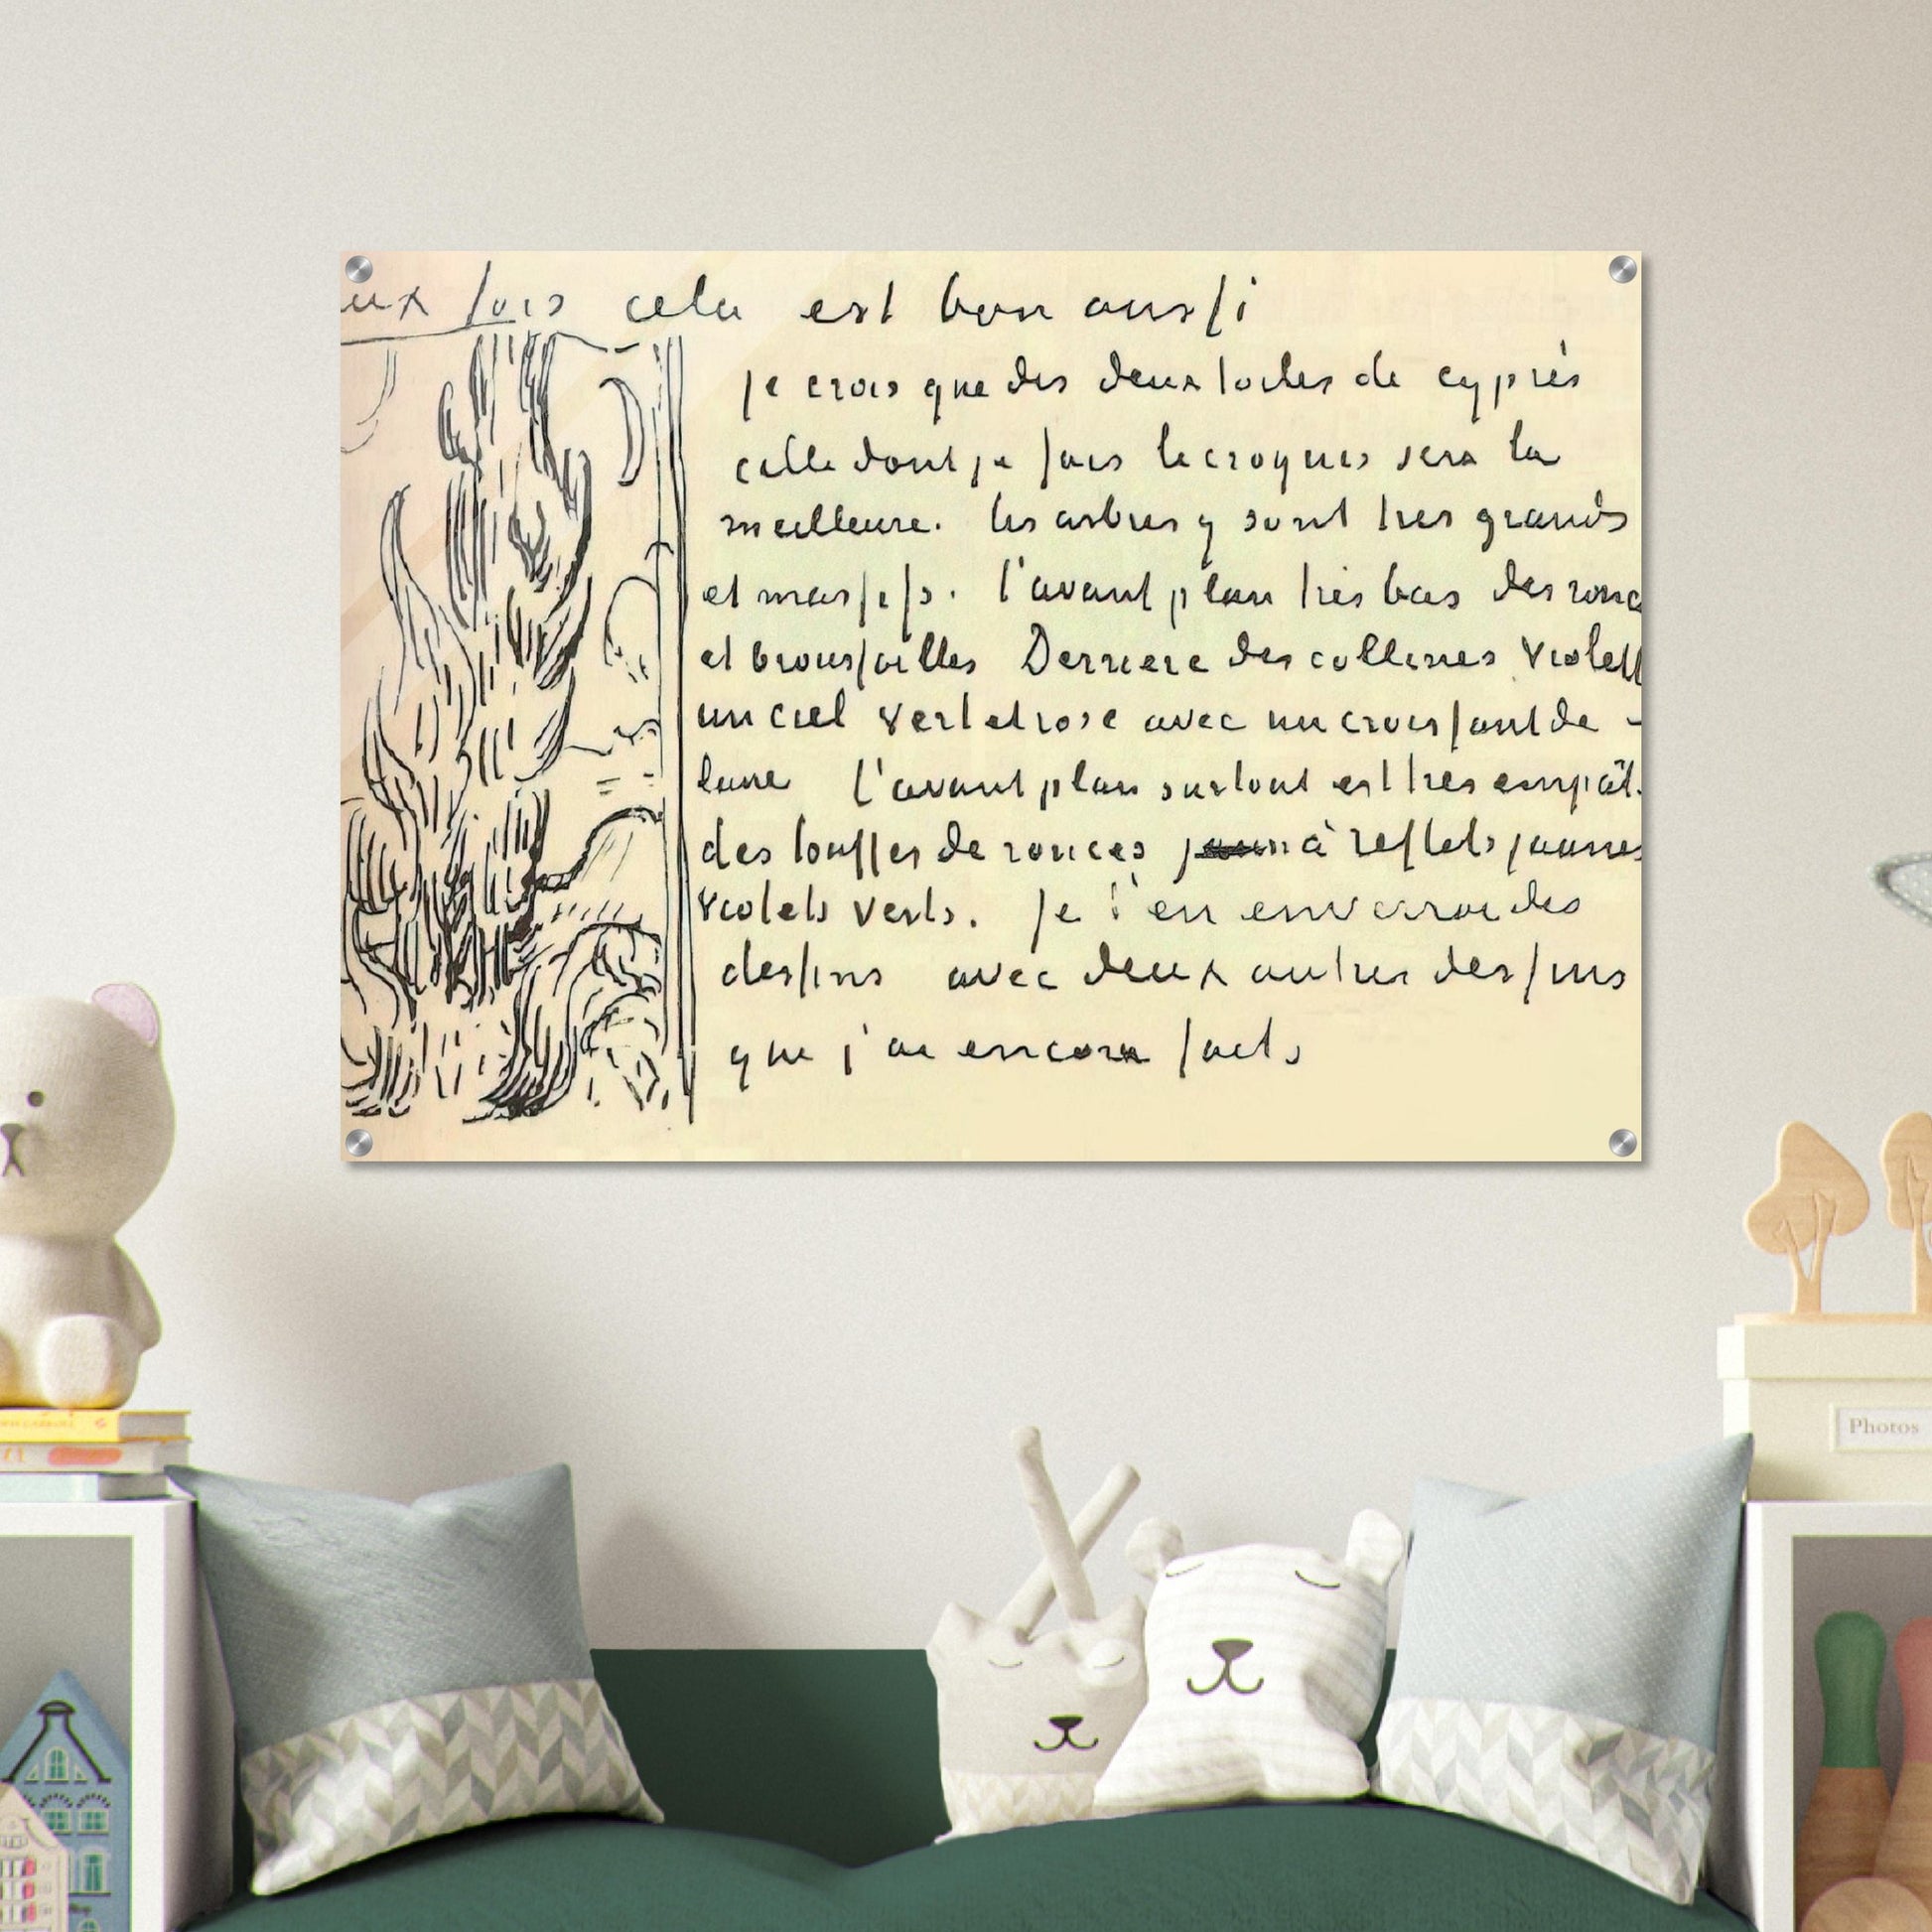 ux fois cela est bon aussi
je crois que des deux toiles de cyprès
celle dont je fais le croquis sera la
meilleure. les arbres y sont tres grands
et massifs. l'avant plan très bas des ronc
et broussailles Derriere des collines violett
un ciel vert et rose avec un croissant de
lune l'avant plan surtout est tres empât
des touffes de ronces à reflets jaunes
violets verts. Je t'en enverrai des
dessins avec deux autres dessins
que j'ai encore faits
Photos